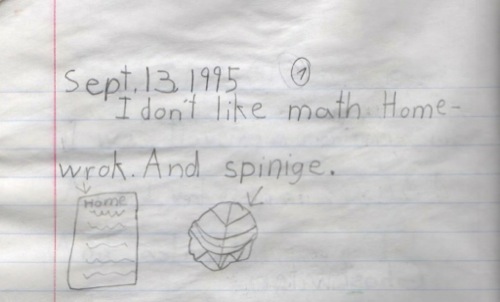 Sept. 13, 1995 1
I don't like math Home-
wrok. And spinige.
Home